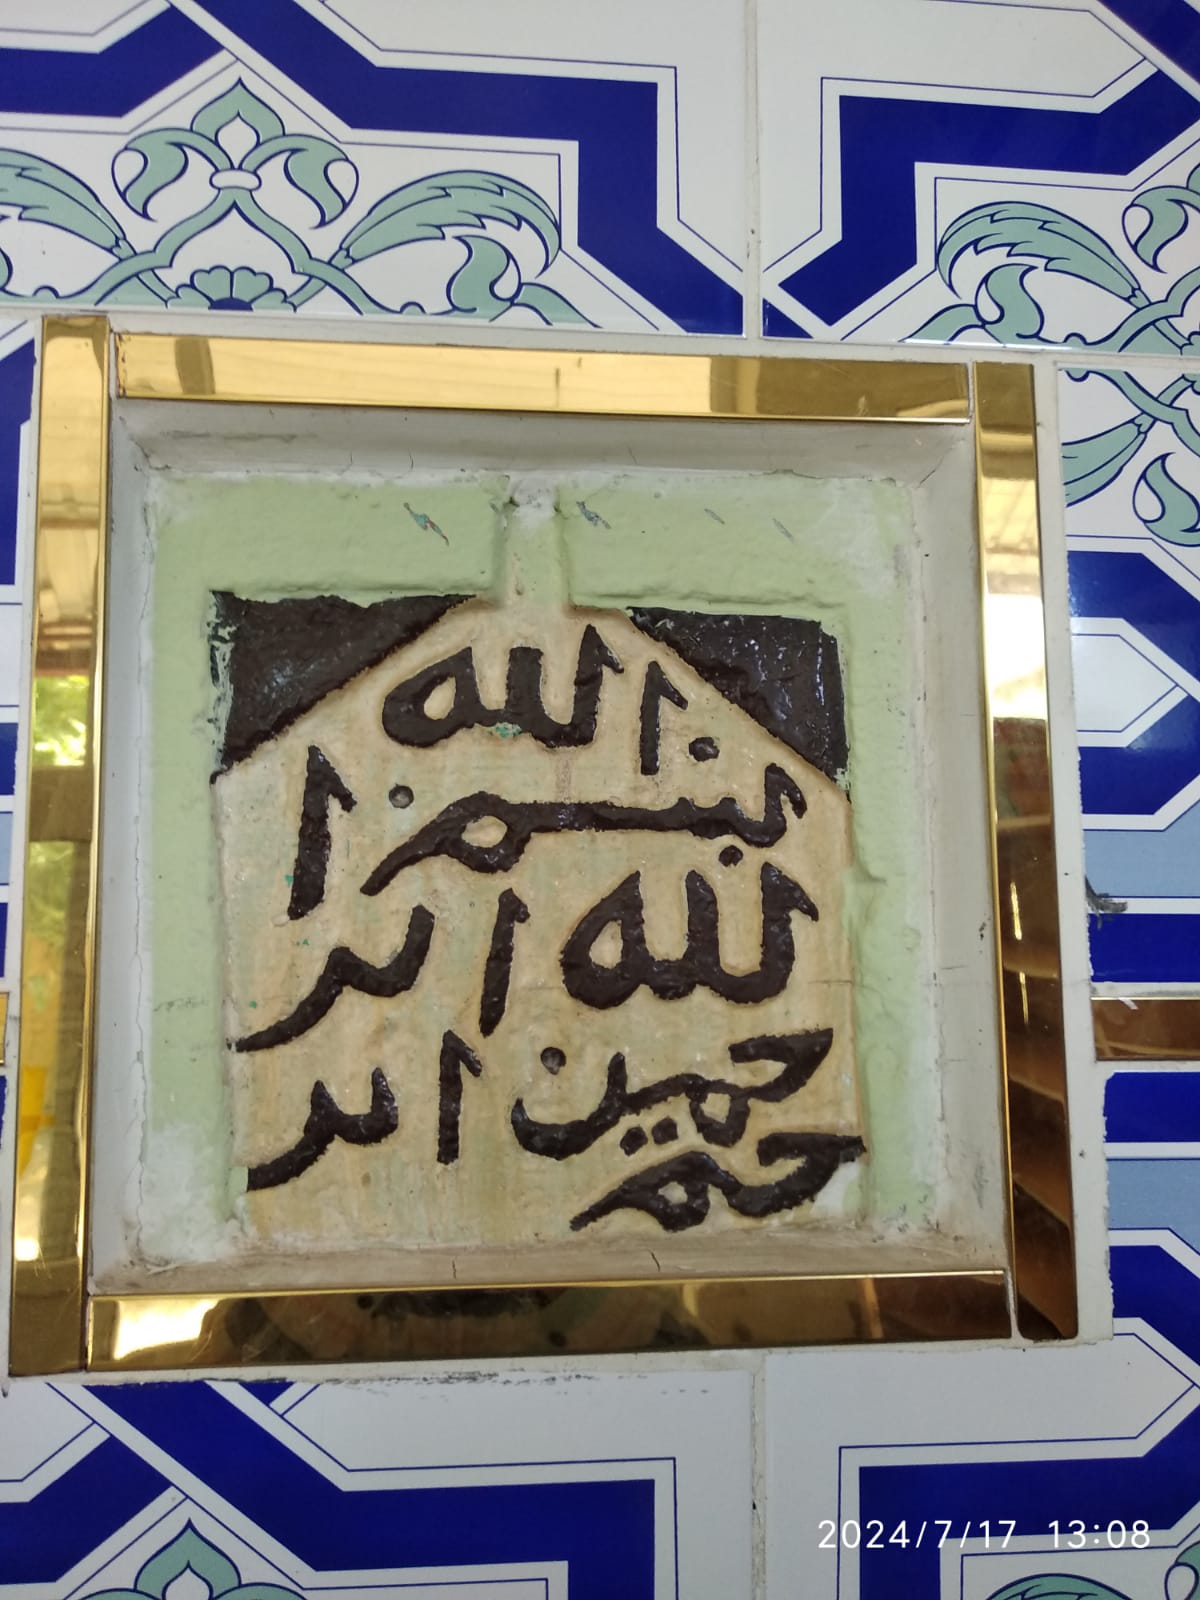 الله
بسم ا
لله الر
حمن الر
حيم
2024/7/17 13:08